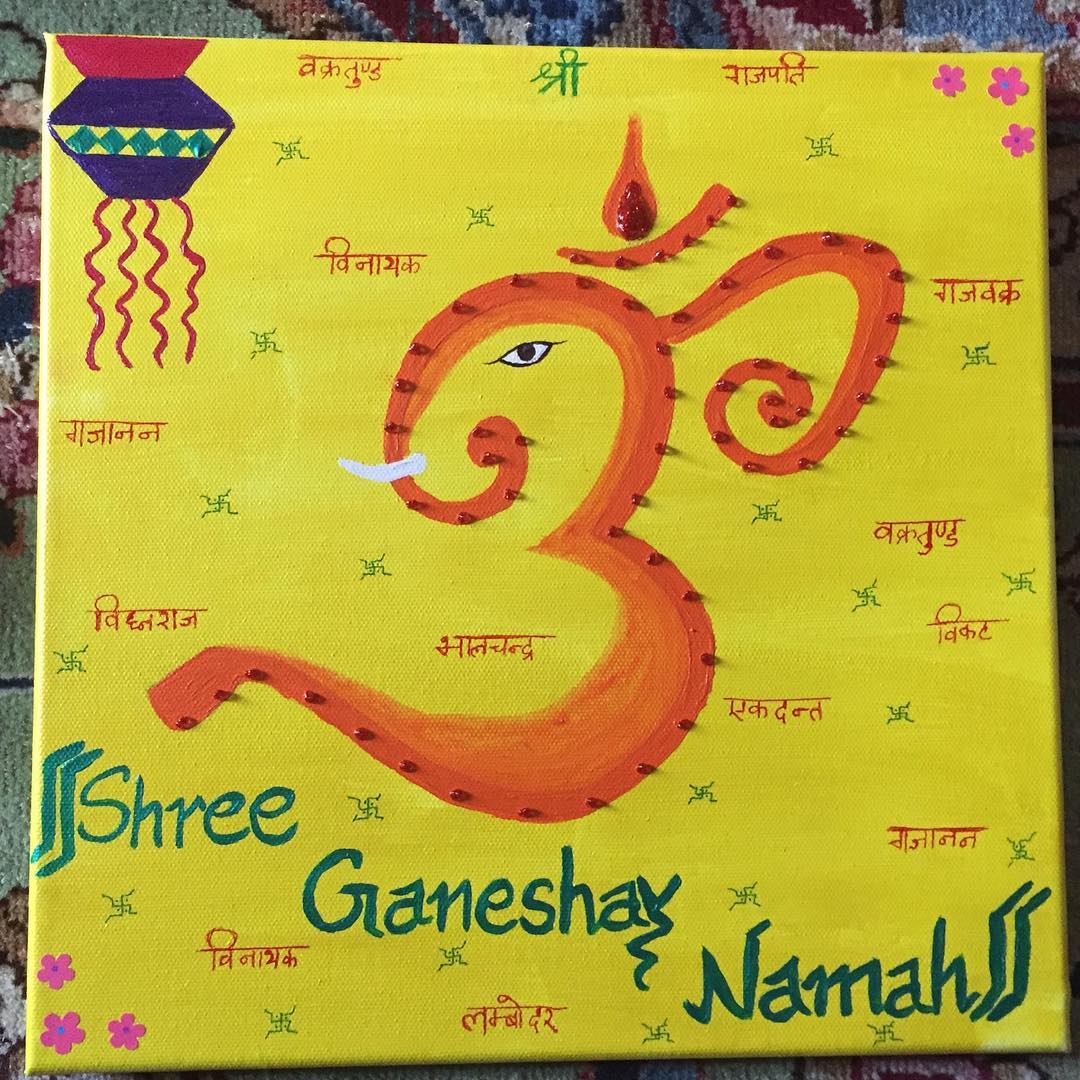 वक्रतुण्ड
श्री
राजपति
विनायक
गजवक्र
गजानन
वक्रतुण्ड
विघ्नराज
विकट
भालचन्द्र
एकदन्त
॥Shree
गजानन
Ganeshay
Namah॥
विनायक
लम्बोदर